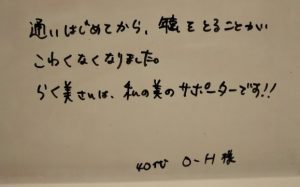 通いはじめてから、歳をとることが
こわくなくなりました。
らく美さんは、私の美のサポーターです!!
40代 O-H 様